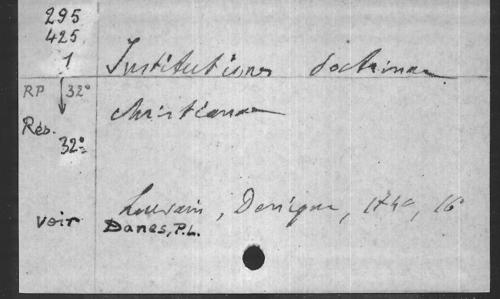 295
425
1 Institutiones doctrinae
RP 32°
christianae
Rés.
32°
Louvain, Denique, 174., 16°
voir Danes, P.L.